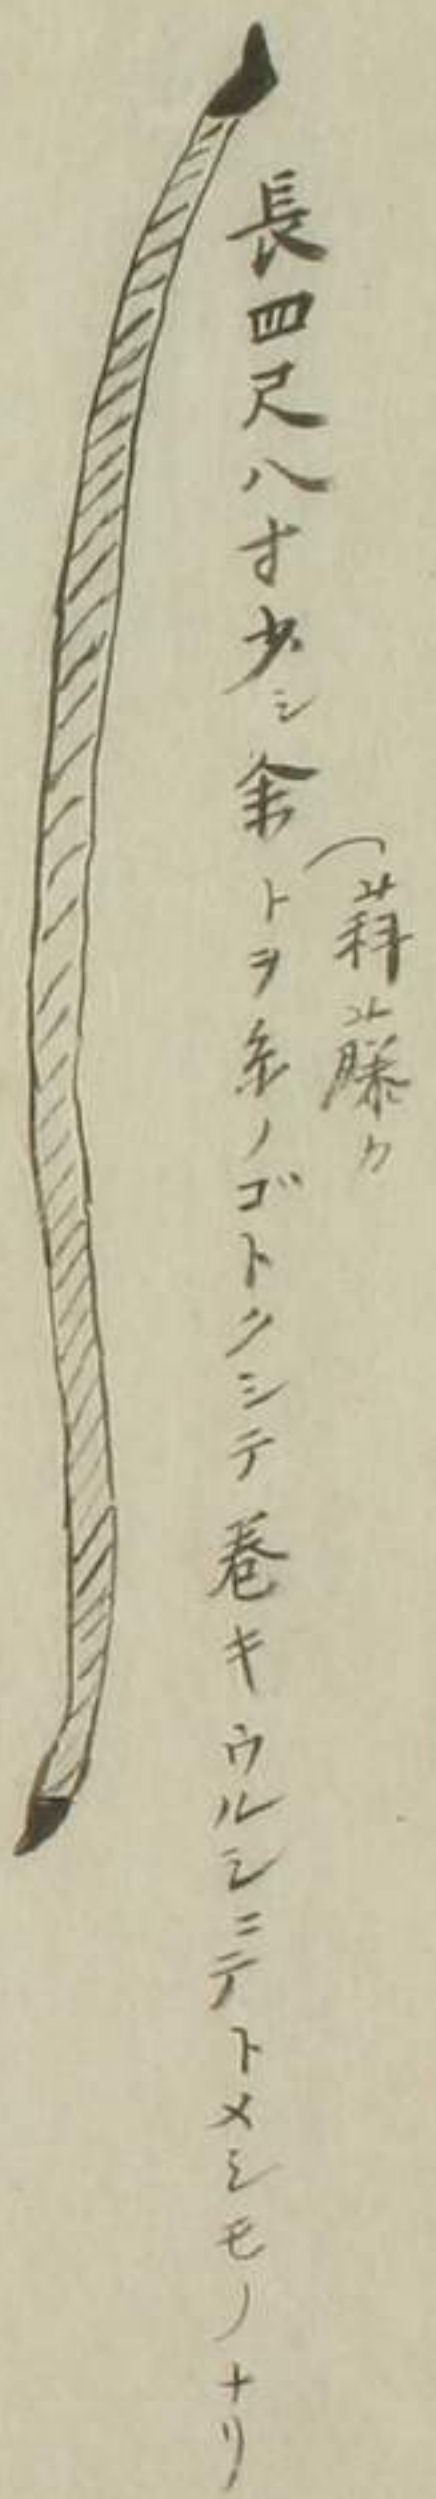 （萪藤カ
長四尺八寸少シ余トヲ糸ノゴトクシテ巻キウルシニテトメシモノナリ